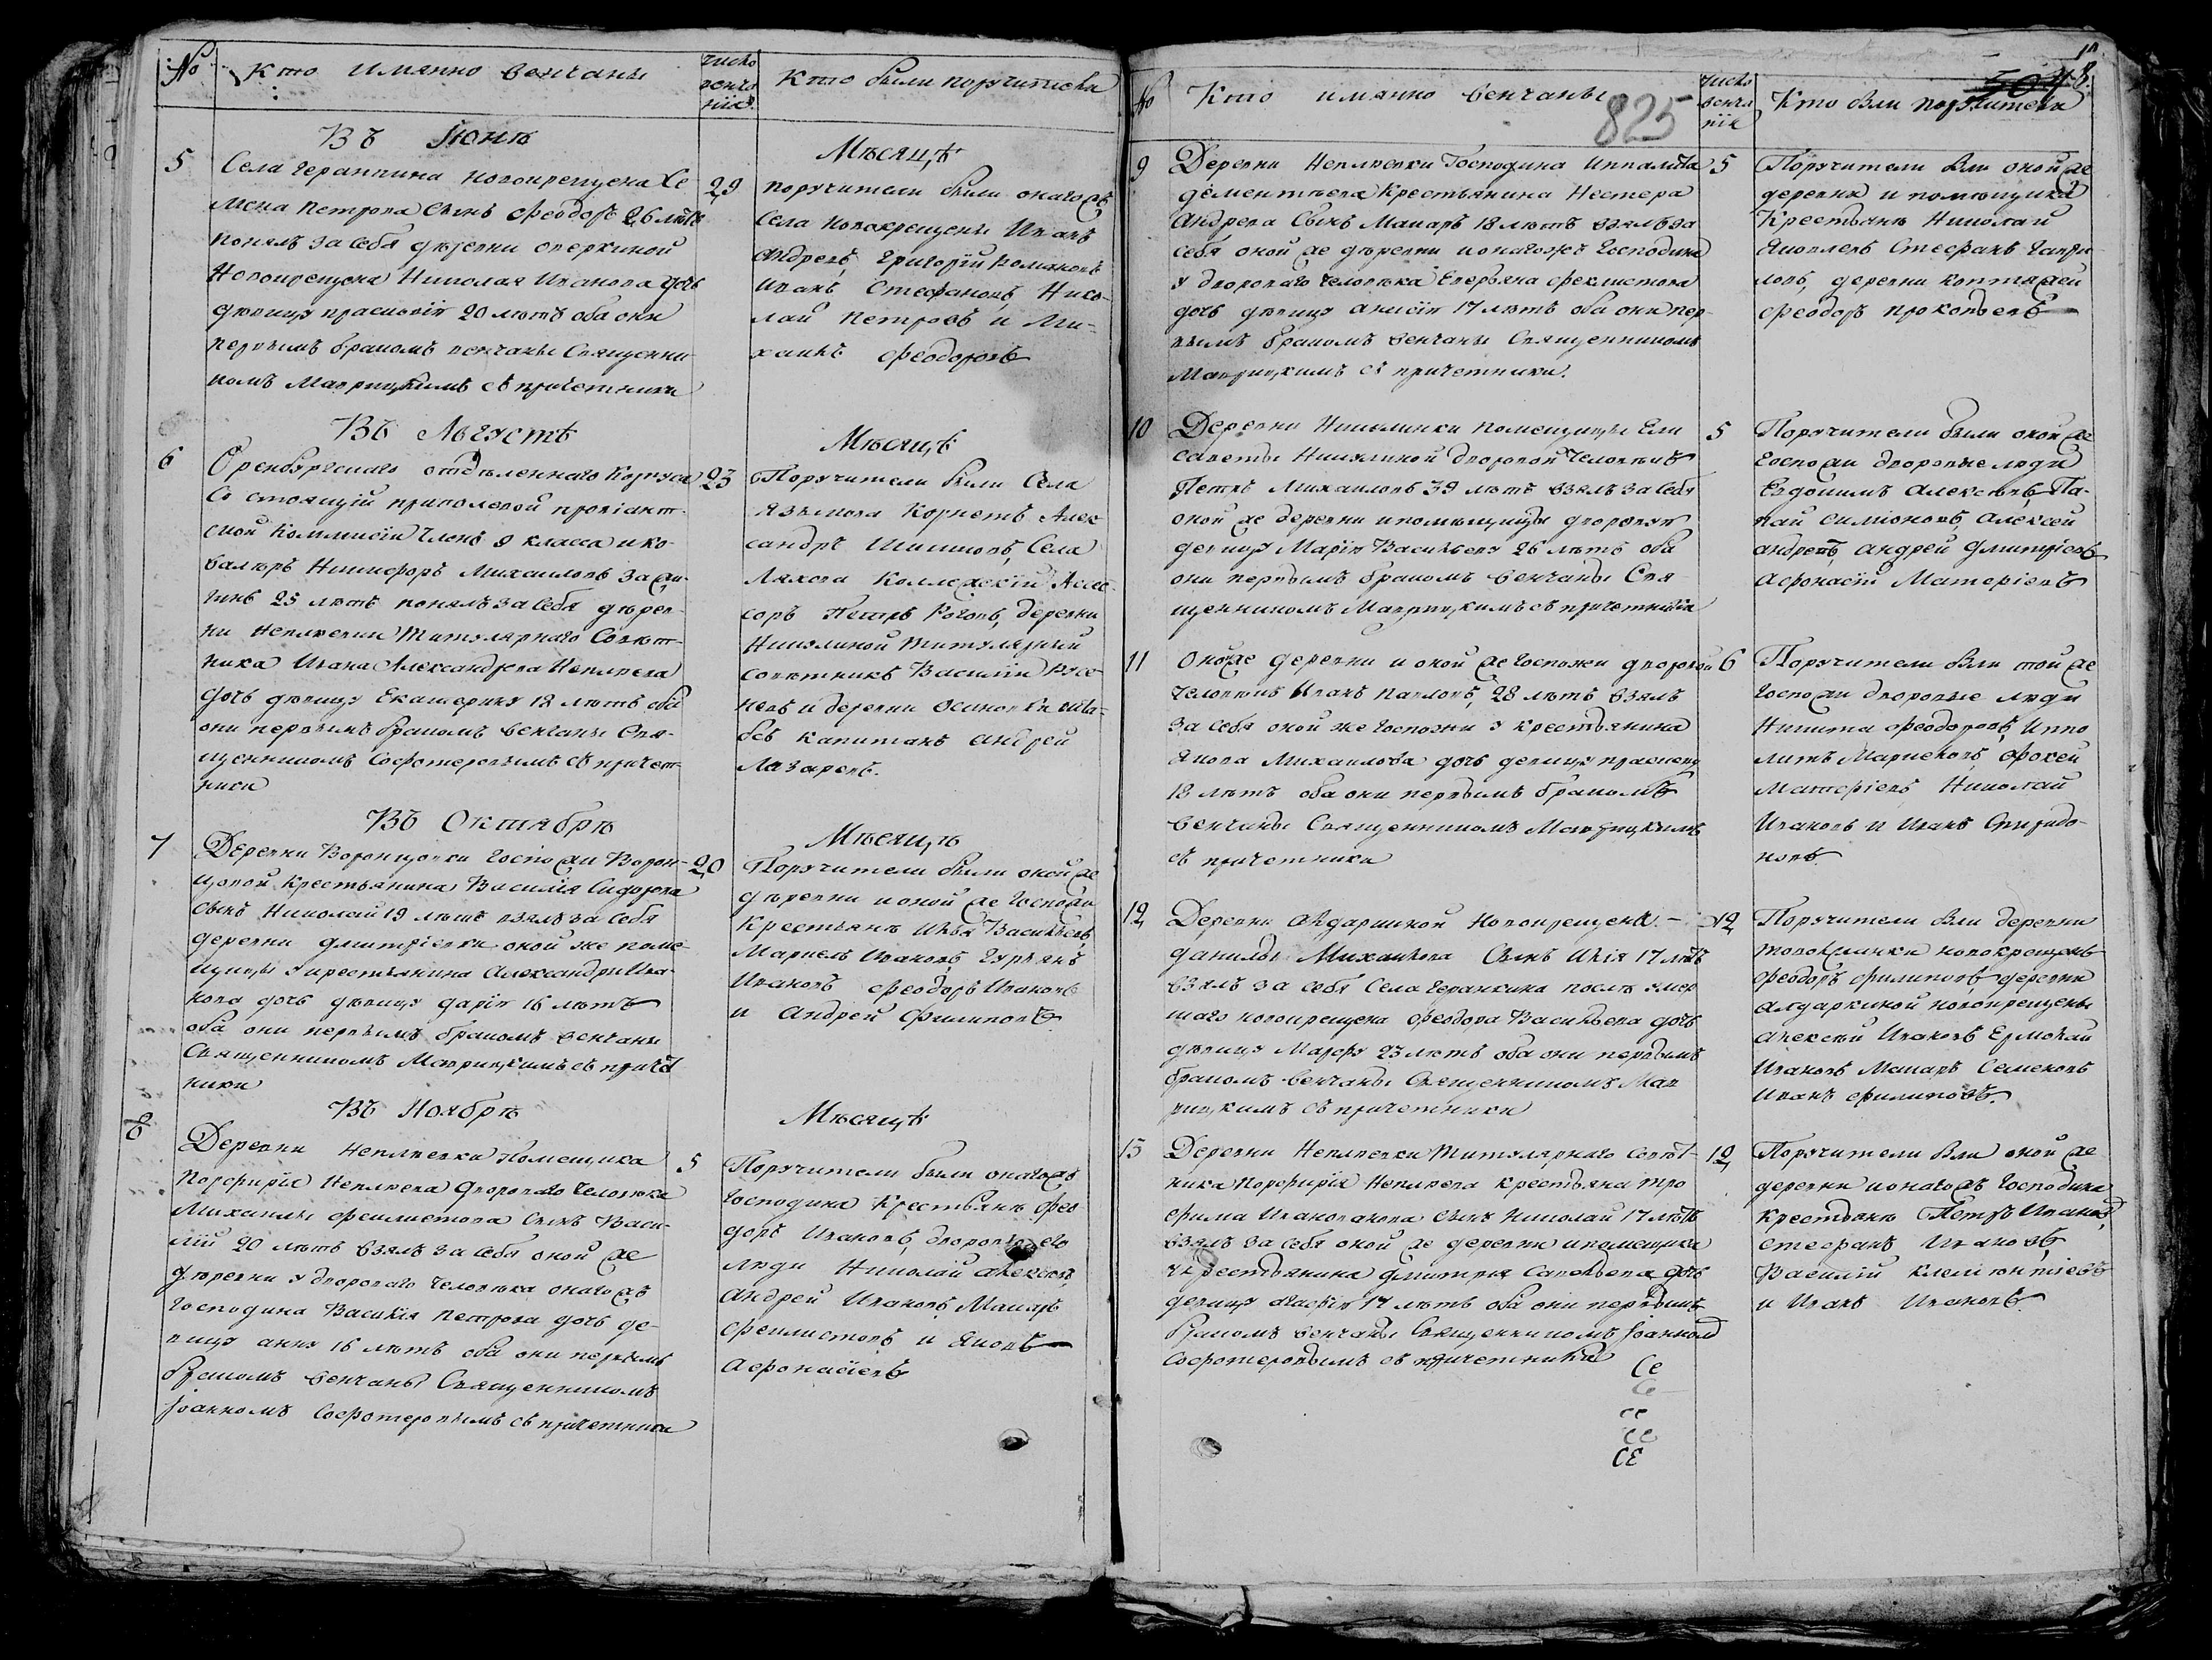 №
Кто имянно венчаны
число
венча
нія
Кто были поручители
Въ Іюнѣ
Мѣсяцѣ
5
Села Геранкина новокрещена Се
мена Петрова сынъ Феодоръ 26 лѣтъ
понялъ за себя дѣревни
Новокрещена Николая Иванова дочь
дѣвицу Прасковію 20 лѣтъ оба они
первымъ бракомъ венчаны Священни
комъ Маврицкимъ съ причетники
29
поручители были онагожъ
Села новокрещены Иванъ
Андревъ, Григорій
Иванъ Стефановъ, Нико-
лай Петровъ и Ми-
хаилъ Феодоровъ
Въ Августѣ
Мѣсяцѣ
6
Оренбургскаго отдѣленнаго Корпуса
Состоящій при полевой провіант-
ской Коммисіи Членъ 9 класса и ка-
валеръ Никифоръ Михаиловъ
25 лѣтъ понялъ за себя дѣрев-
ни Неплюевки Титулярнаго Совѣт-
ника Ивана Александрова Неплюева
дочь дѣвицу Екатерину 18 лѣтъ оба
они первымъ бракомъ венчаны Свя-
щенникомъ Софотеровымъ съ причет-
ники
23
Поручители были Села
Языкова Корнетъ Алек
сандръ Шишковъ, Села
Ляхова Коллежскій Асес-
соръ Петръ Роговъ, деревни
Никулиной Титулярный
совѣтникъ Василій
и деревни Осиновки шта-
бсъ капитанъ Андрей
Лазаревъ.
Въ Октябрѣ
Мѣсяцѣ
7
Деревни Воронцовки Госпожи Ворон-
цовой Крестьянина Василія Сидорова
сынъ Николай 19 лѣтъ взялъ за себя
деревни Дмитріевки оной же поме-
щицы у крестьянина Александры Ива-
нова дочь дѣвицу Дарію 16 лѣтъ
оба они первымъ бракомъ венчаны
Священникомъ Маврицкимъ съ причет
ники
20
Поручители были оной же
дѣревни и оной же Госпожи
Крестьяне Илья Васильевъ,
Маркелъ Ивановъ, Гурьянъ
Ивановъ Феодоръ Ивановъ
и Андрей Филиповъ
Въ Ноябрѣ
Мѣсяцѣ
8
Деревни Неплюевки Помещика
Порфирія Неплюева дворового человѣка
Михаилы Феклистова сынъ Васи-
лій 20 лѣтъ взялъ за себя оной же
дѣревни у дворового человѣка онагожъ
Господина Василія Петрова дочь де-
вицу Анну 16 лѣтъ оба они первымъ
бракомъ венчаны Священникомъ
Іоанномъ Софотеровымъ съ причетники
5
Поручители были онагожъ
Господина Крестьяне Фео
доръ Ивановъ, дворовые его
люди Николай Алексевъ
Андрей Ивановъ, Макаръ
Феклистовъ и Яковъ
Афонасіевъ
№
Кто имянно венчаны
825
число
венча
нія
Кто были поручители
504
9
Деревни Неплюевки Господина Иппалита
Дементьева Крестьянина Нестера
Андрева Сынъ Макаръ 18 лѣтъ взялъ за
себя оной же дѣревни и онагожъ Господина
у дворового человѣка Еверьяна Феклистова
дочь дѣвицу Анисію 17 лѣтъ оба они пер-
вымъ бракомъ венчаны Священникомъ
Маврицкимъ съ причетники.
5
Поручители были оной же
деревни и помѣщика
Крестьяне Николай
Яковлевъ Стефанъ Гаври
ловъ, деревни
Феодоръ Прокопьевъ
10
Деревни Никулинки помещицы Ели
саветы Никулиной дворовой человѣкъ
Петръ Михаиловъ 39 лѣтъ взялъ за себя
оной же деревни и помѣщицы дворовую
девицу Марію Васильеву 26 лѣтъ оба
они первымъ бракомъ венчаны Свя
щенникомъ Маврицкимъ съ причетники
5
Поручители были оной же
Госпожи дворовые люди
Евдокимъ Алексевъ,
Симіоновъ, Алексей
Андревъ, Андрей Дмитріевъ
Афонасій Матвріевъ
11
Оной же деревни и оной же Госпожи дворовой
человѣкъ Иванъ Павловъ, 28 лѣтъ взялъ
за себя оной же Госпожи у крестьянина
Якова Михаилова дочь девицу
18 лѣтъ оба они первымъ бракомъ
венчаны Священникомъ Маврицкимъ
съ причетники
6
Поручители были той же
Госпожи дворовые люди
Никита Феодоровъ, Иппо
литъ Маркеловъ, Фокей
Николай
Ивановъ и Иванъ Спиридо-
новъ.
12
Деревни Алдаркиной Новокрещена
Данилы Михаилова Сынъ Илія 17 лѣтъ
взялъ за себя Села Геранкина послѣ умер
шаго новокрещена Феодора Васильева дочь
дѣвицу Марфу 23 лѣтъ оба они первымъ
бракомъ венчаны Священникомъ Мав
рицкимъ съ причетники
12
Поручители были деревни
новокрещенъ
Феодоръ Филиповъ деревни
Алдаркиной новокрещены
Алексѣй Ивановъ Ермолай
Ивановъ Макаръ Семеновъ
Иванъ Филиповъ.
13
Деревни Неплюевки Титулярнаго Совѣт-
ника Порфирія Неплюева крестьянина Тро
фима сынъ Николай 17 лѣтъ
взялъ за себя оной же деревни и помещика
у крестьянина Дмитрія Савельева дочь
девицу Агафію 17 лѣтъ оба они первымъ
бракомъ венчаны Священникомъ Іоанномъ
Софотеровымъ съ причетники
12
Поручители были оной же
деревни и онагожъ Господина
крестьяне Петръ Ивановъ,
Стефанъ Ивановъ,
Василій Клементіевъ
и Иванъ Ивановъ.